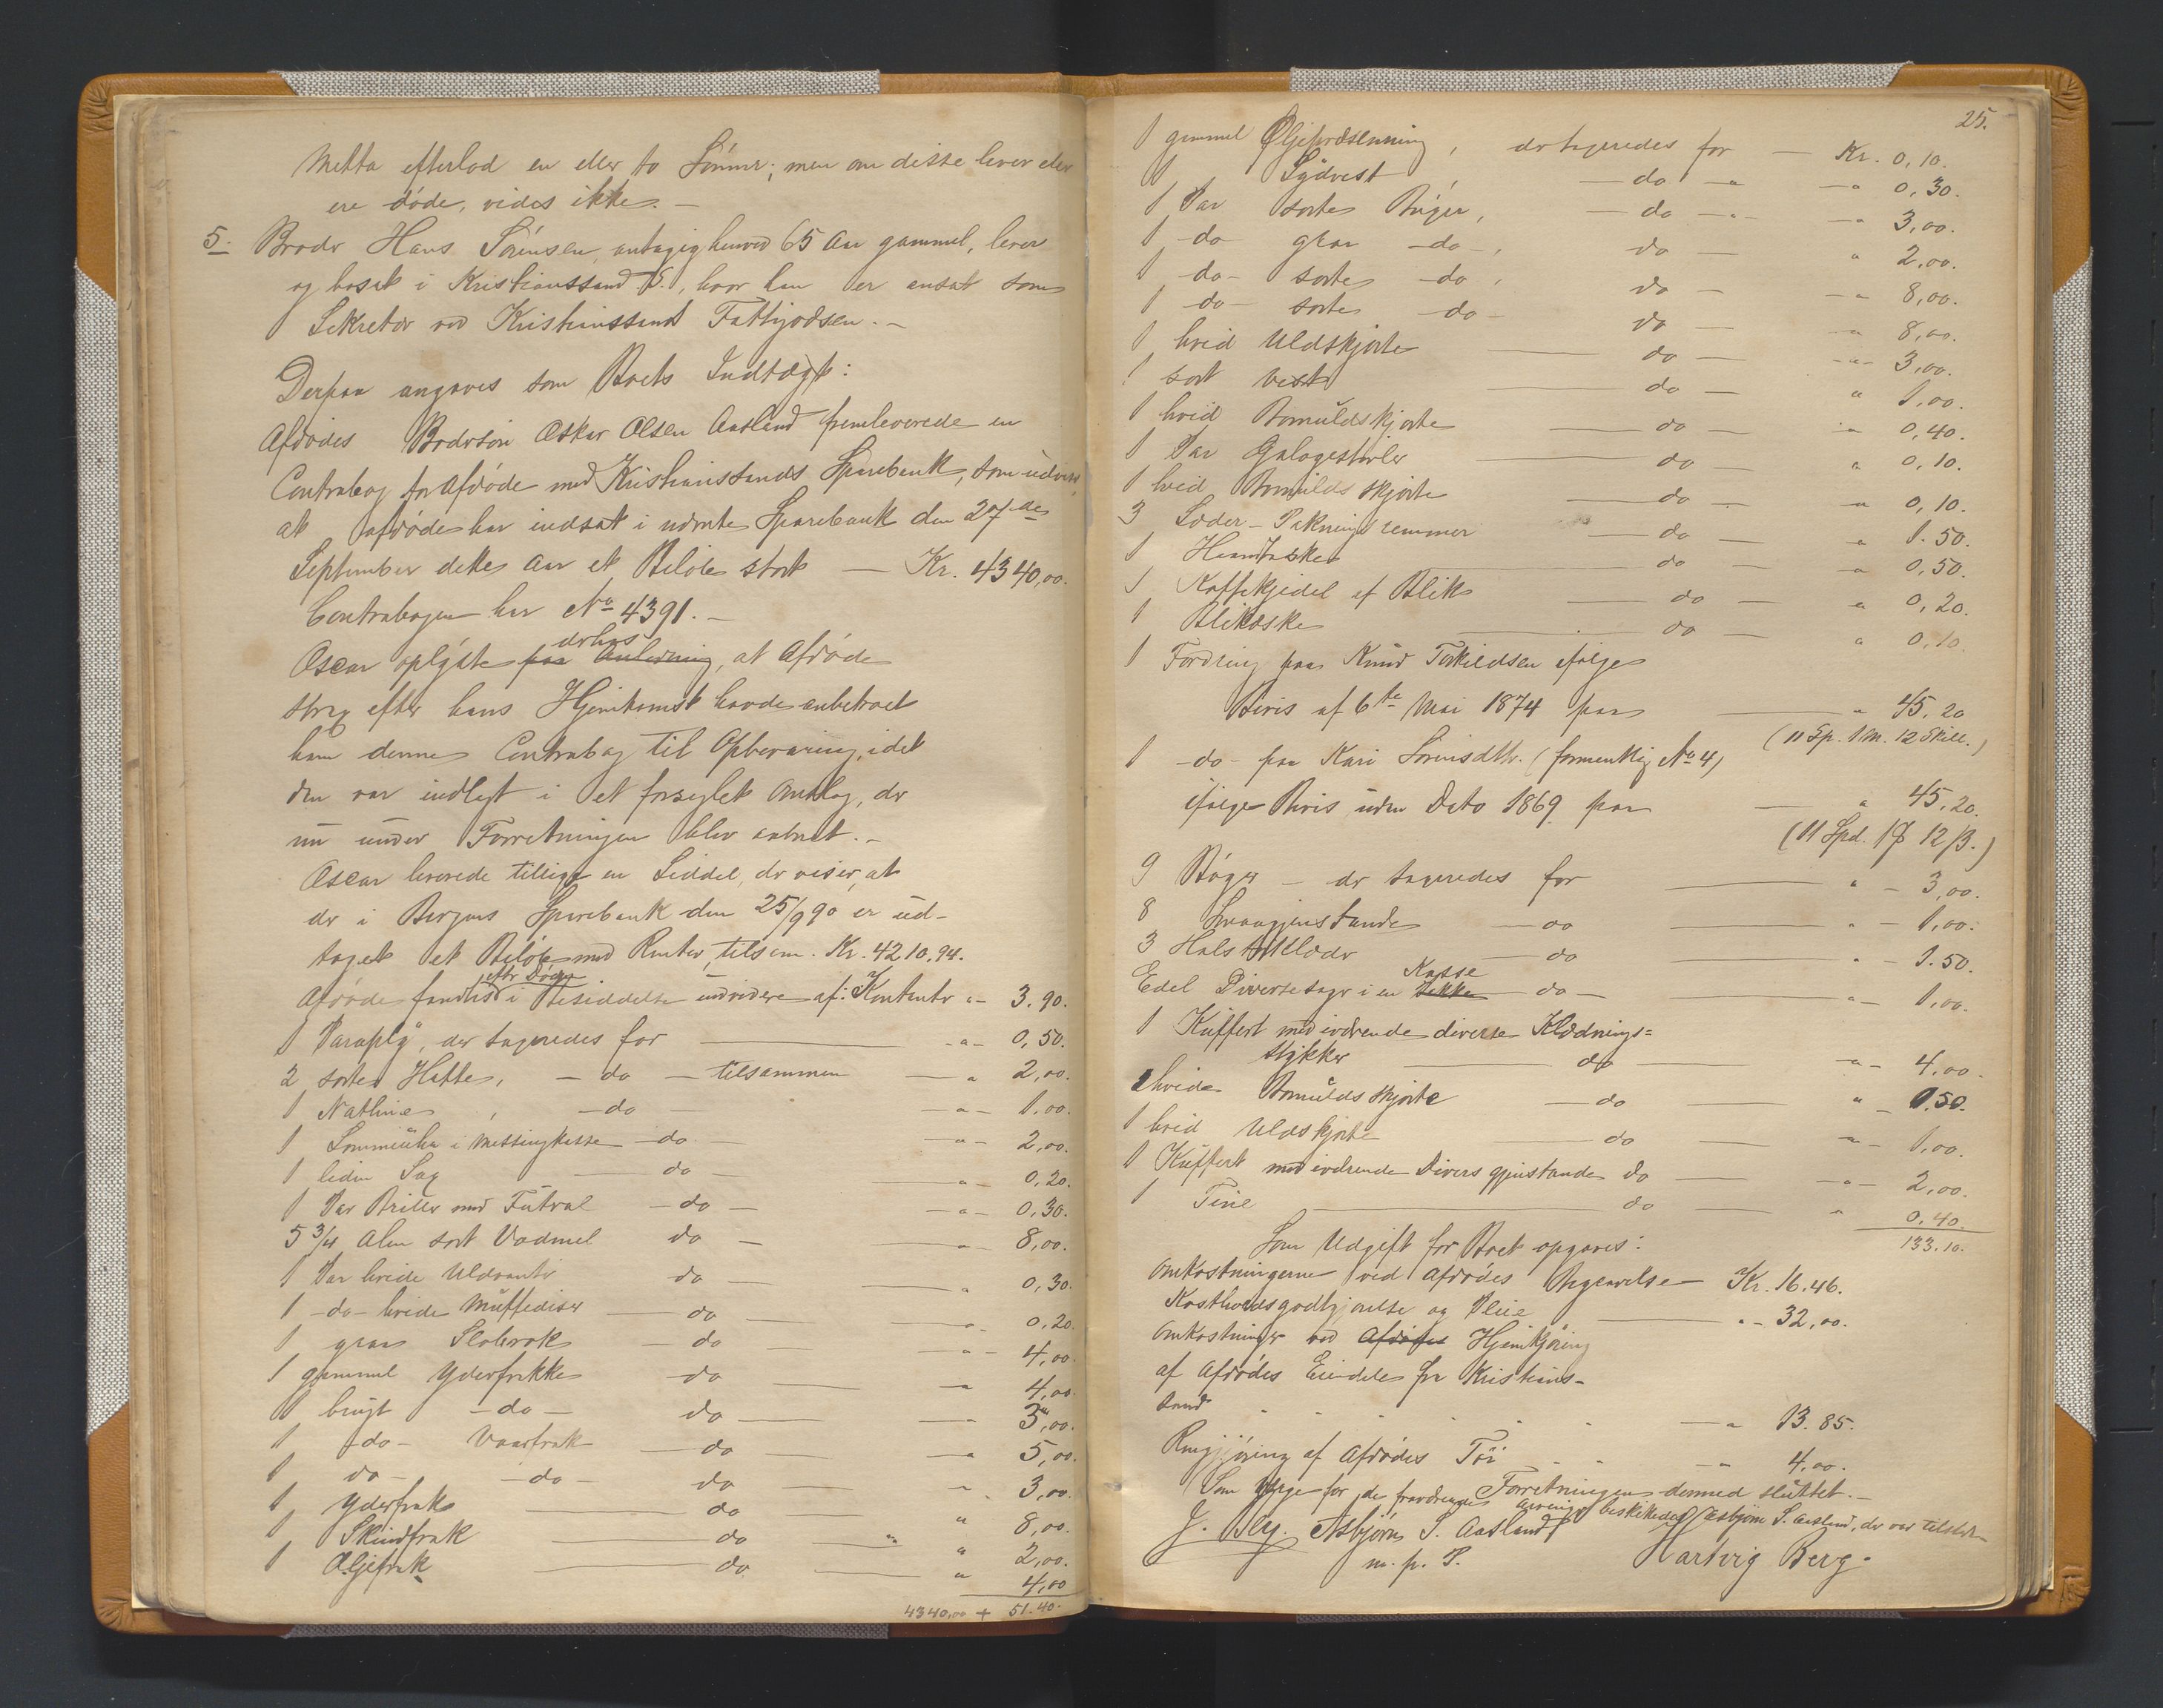 Metta efterlod en eller to Sönner; men om disse lever eller
ere döde, vides ikke. —
5. Broder Hans Sörensen, antagelig henved 65 Aar gammel, lever
og bosat i Kristianssand S., hvor han er ansat som
Sekretær ved Kristianssand Fattigvæsen. —
Derpaa angaves som Boets Indtægt:
Afdödes Brodersön Oskar Olsen Aasland fremleverede en
Contrabog for Afdöde med Kristianssands Sparebank, som udviser,
at afdöde har indsat i nævnte Sparebank den 27de
September dette Aar et Belöb stort — Kr. 4340,00.
Contrabogen har No 4391. —
Oscar oplyste paa Anledning derhos, at Afdöde
strax efter hans Hjemkomst havde anbetroet
ham denne Contrabog til Opbevaring, idet
den var indlagt i et forseglet Omslag, der
nu under Forretningen blev aabnet. —
Oscar leverede tillige en Seddel, der viser, at
der i Bergens Sparebank den 25/9 90 er ud-
taget et Belöb med Renter, tilsam. Kr. 4210.94.
Afdöde fandtes i Besiddelse endvidere af: Kontanter " - 3.90.
1 Paraply, der taxeredes for — " - 0,50.
2 sorte Hatte, — do — tilsammen — " 2,00.
1 Nathue, — do — " - 1.00.
1 Lommeuhr i Messingkasse — do — " - 2,00.
1 liden Sag — do — " - 0,20.
1 Par Briller med Futral — do — " - 0,30.
5 3/4 Alen sort Vadmel do — " 8,00.
1 Par hvide Uldvanter do — " 0,30.
1 - do - hvide Muffediser — do — " 0,20.
1 graa Slobrok — do — " - 4,00.
1 gammel Yderfrakke do — " 4,00.
1 brugt — do — do — " 3,00.
1 do — Vaarfrak — do — " 5,00.
1 do — — do — do — " 3,00.
1 Yderfrak — do — " 8,00.
1 Skindfrak — do — " 2,00.
1 Oljefrak — do — " 4,00
4340,00 + 51.40.
25.
1 gammel Oljepræsenning, der taxeredes for — Kr. 0,10.
1 Sydvest, — do — " — " 0,30.
1 Par sorte Buxer, — do — " — " 3,00.
1 do graa — do —, do — " 2,00.
1 do — sorte — do, do — " 8,00.
1 do — sorte — do — do — " 8,00.
1 hvid Uldskjorte — do — " 3,00.
1 sort Vest — do — " 1,00.
1 hvid Bomuldsskjorte — do — " 0,40.
1 Par Galogestövler — do — " 0,10.
1 hvid Bomuldsskjorte — do — " 0,10.
3 Læder-Pakningsremmer — do — " 1.50.
1 Haandtaske — do — " 0,50.
1 Kaffekjedel af Blik — do — " 0,20.
1 Blikæske — do — " 0,10.
1 Fordring paa Knud Torkildsen ifölge
Bevis af 6te Mai 1874 paa — " 45,20
(11 Sp. 1 M. 12 Skill.)
1 - do - paa Kari Sörensdtr. (formentlig No 4)
ifölge Bevis uden Dato 1869 paa — " 45,20.
(11 Spd. 1 12 /3.)
9 Böger — der taxeredes for — " - 3,00.
8 Smaagjenstande — do — " - 1,00.
3 Halstörklæder — do — " - 1.50.
Endel Diversesager i en Sække Kasse — do — " - 1,00.
1 Kuffert med iværende diverse Klædnings=
stykker — do — " - 4,00.
hvide Bomuldsskjorte — do — " - 0.50.
1 hvid Uldskjorte — do — " - 1,00.
1 Kuffert med iværende Divers gjenstande do — " - 2,00.
1 Tine — do — " 0,40.
133.10.
Som Udgift for Boet opgaves:
Omkostningerne ved Afdödes Begravelse — Kr. 16.46.
Kostholdsgodtgjörelse og Pleie — " - 32,00.
Omkostninger ved Afdödes Hjemkjöring
af Afdödes Eiendele fra Kristians-
sand — " 13.85.
Rengjöring af Afdödes Töi — " 4,00.
Forretningen dermed sluttet. —
Som Værge for de fraværende Arvinger beskikkedes Asbjörn S. Aasland, der var tilstede
J. Berg. Asbjörn S. Aasland
m. p. P.
Hartvig Berg.